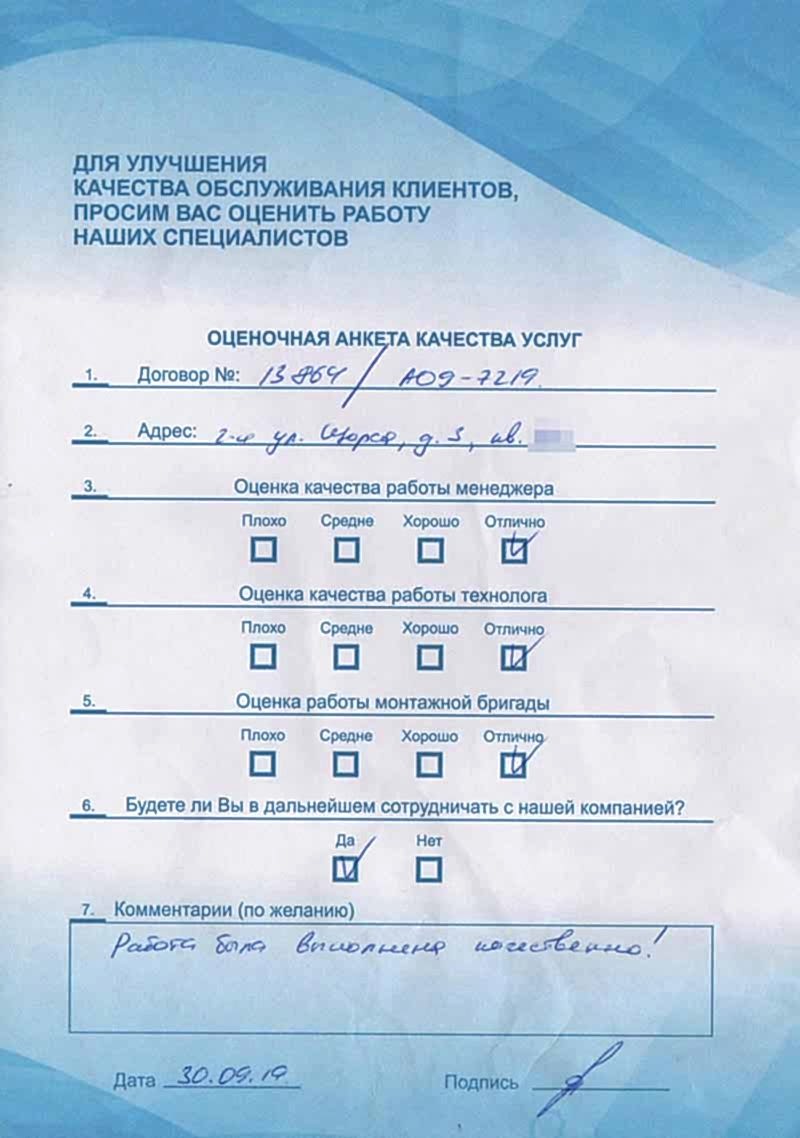 ДЛЯ УЛУЧШЕНИЯ
КАЧЕСТВА ОБСЛУЖИВАНИЯ КЛИЕНТОВ,
ПРОСИМ ВАС ОЦЕНИТЬ РАБОТУ
НАШИХ СПЕЦИАЛИСТОВ
ОЦЕНОЧНАЯ АНКЕТА КАЧЕСТВА УСЛУГ
1. Договор №: 13864 / А09-7219
2. Адрес: 2-я ул. Щорса, д. 3, кв.
3. Оценка качества работы менеджера
Плохо Средне Хорошо Отлично
4. Оценка качества работы технолога
Плохо Средне Хорошо Отлично
5. Оценка работы монтажной бригады
Плохо Средне Хорошо Отлично
6. Будете ли Вы в дальнейшем сотрудничать с нашей компанией?
Да Нет
7. Комментарии (по желанию)
Работа была выполнена качественно!
Дата 30.09.19 Подпись